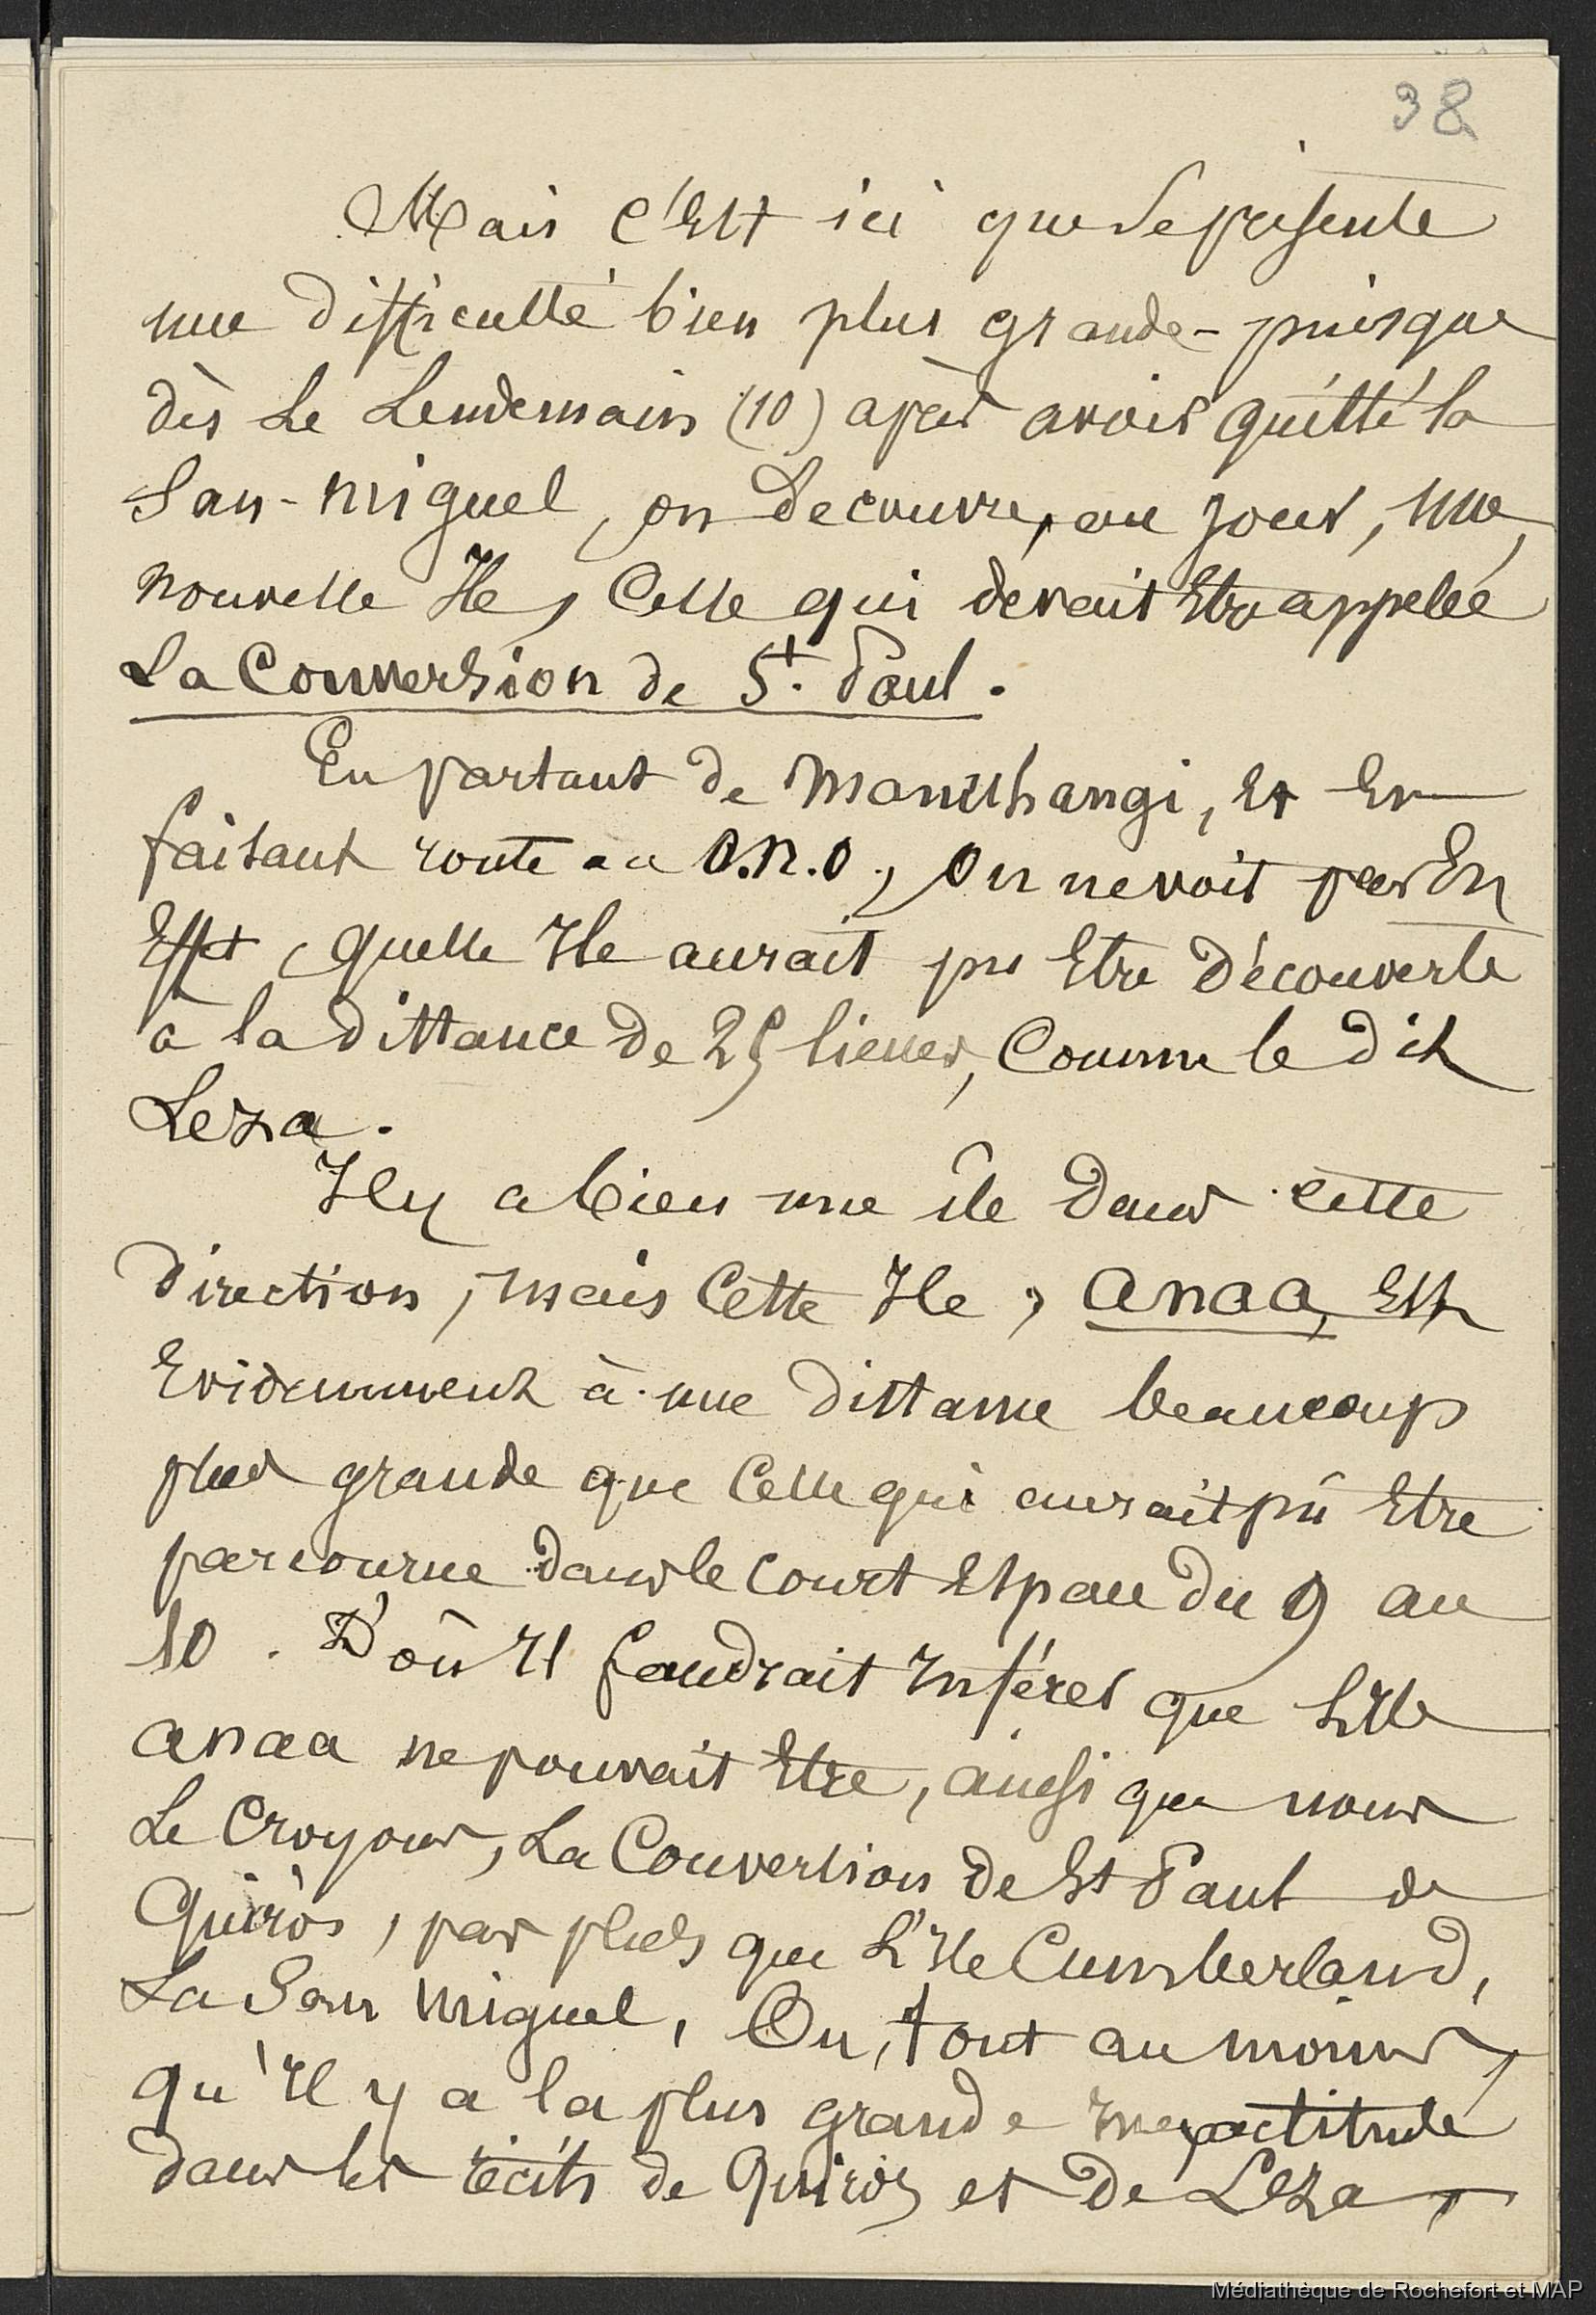 38
Mais c'Est ici que se présente
une difficulté bien plus grande - puisque
dès Le Lendemain (10) après avoir quitté la
San-miguel, on decouvre, au jour, une,
nouvelle Ile, Celle qui devait Etre appelée
La Conversion de St. Paul.
En partant de Manuhangi, Et En
faisant route au O.N.O., On ne voit pas En
Effet, quelle Ile aurait pu Etre découverte
à la distance de 25 lieues, Comme le dit
Leza.
Il y a bien une île dans cette
direction, mais Cette Ile, anaa, Est
Evidemment à une distance beaucoup
plus grande que Celle qui aurait pû Etre
parcourue dans le court Espace du 9 au
10. D'où Il faudrait Inférer que L'Ile
anaa ne pouvait Etre, ainsi que nous
Le Croyons, La Conversion de St Paul de
Quiròs, pas plus que L'Ile Cumberland,
La San Miguel, Ou, tout au moins,
qu'Il y a la plus grande Inexactitude
dans les récits de Quiròs et de Leza,
Médiathèque de Rochefort et MAP